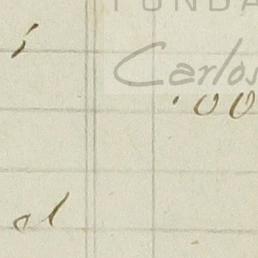 FUNDA
Carlos
.00
el